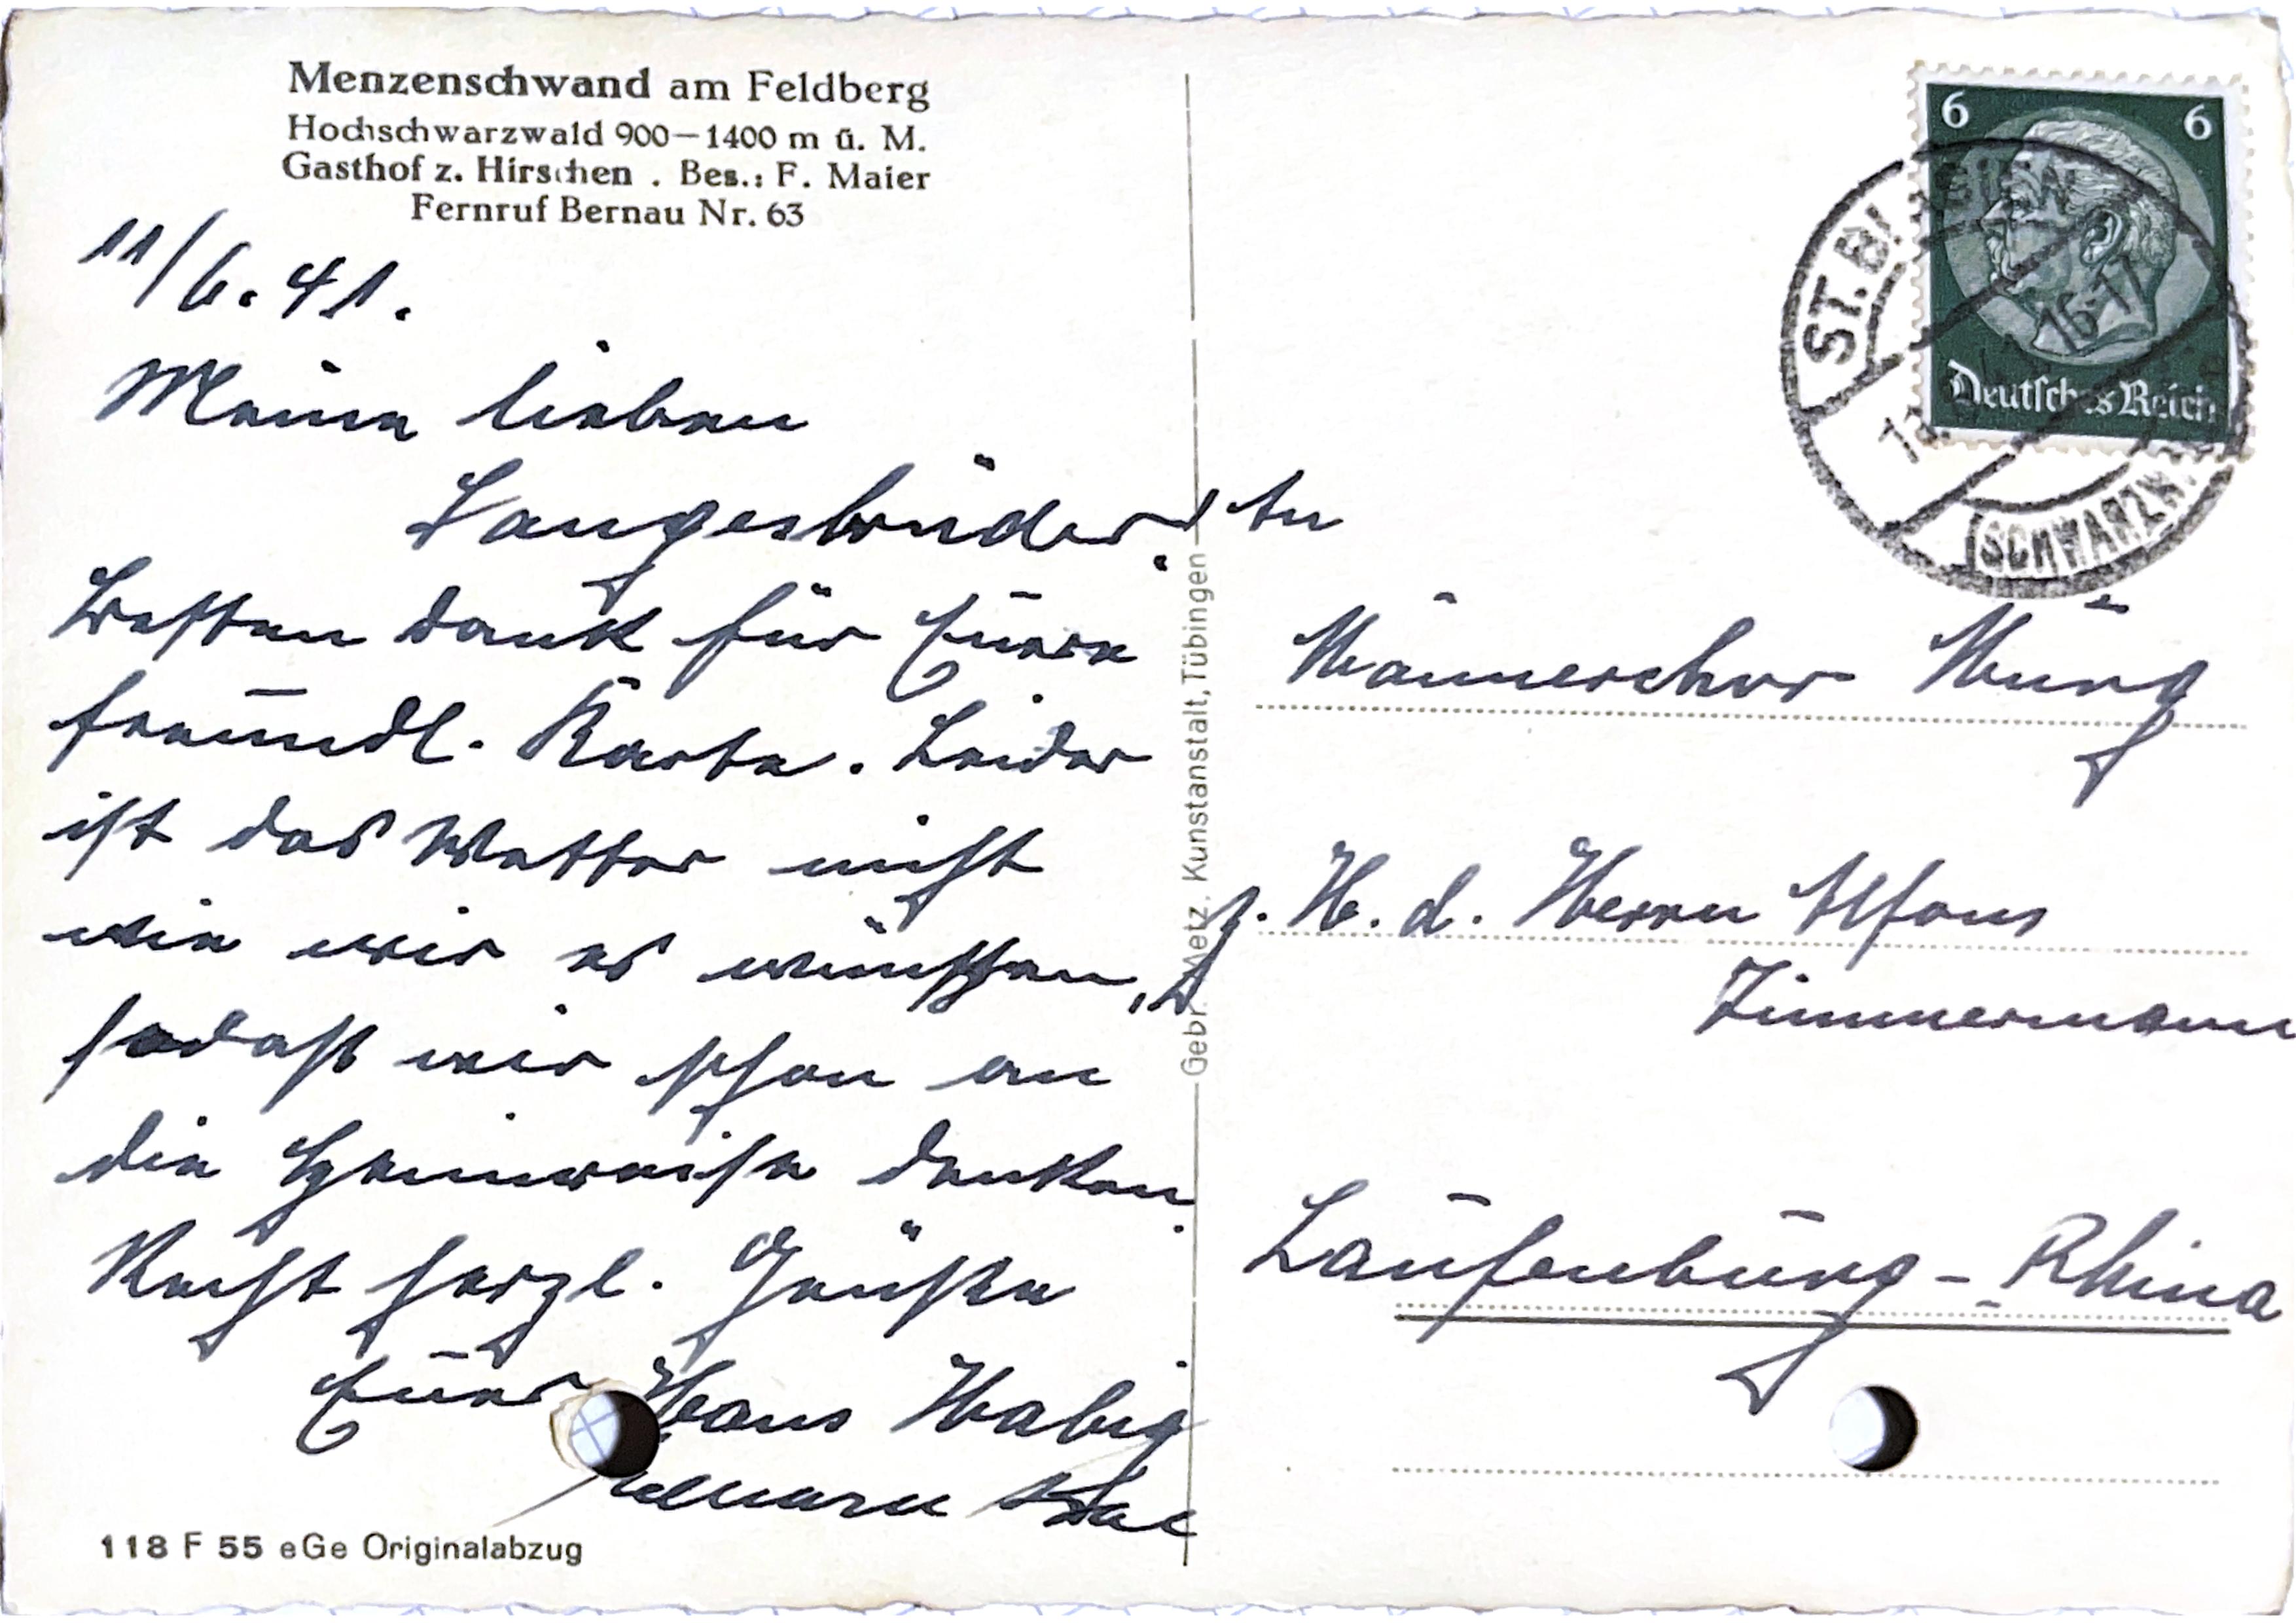 Menzenschwand am Feldberg
Hochschwarzwald 900—1400 m ü. M.
Gasthof z. Hirschen . Bes.: F. Maier
Fernruf Bernau Nr. 63
11/6. 41.
Meine lieben
Sangesbrüder!
Besten Dank für Eure
freundl. Karte. Leider
ist das Wetter nicht
wie wir es wünschen,
sodaß wir schon an
die Heimreise denken.
Recht herzl. Grüße
Euer Hans Habig
118 F 55 eGe Originalabzug
Gebr. Metz, Kunstanstalt, Tübingen
6 6
Deutsches Reich
ST. BLASIEN
16-17
(SCHWARZW.
An
Männerchor Murg
z. H. d. Herrn Alfons
Zimmermann
Laufenburg - Rhina